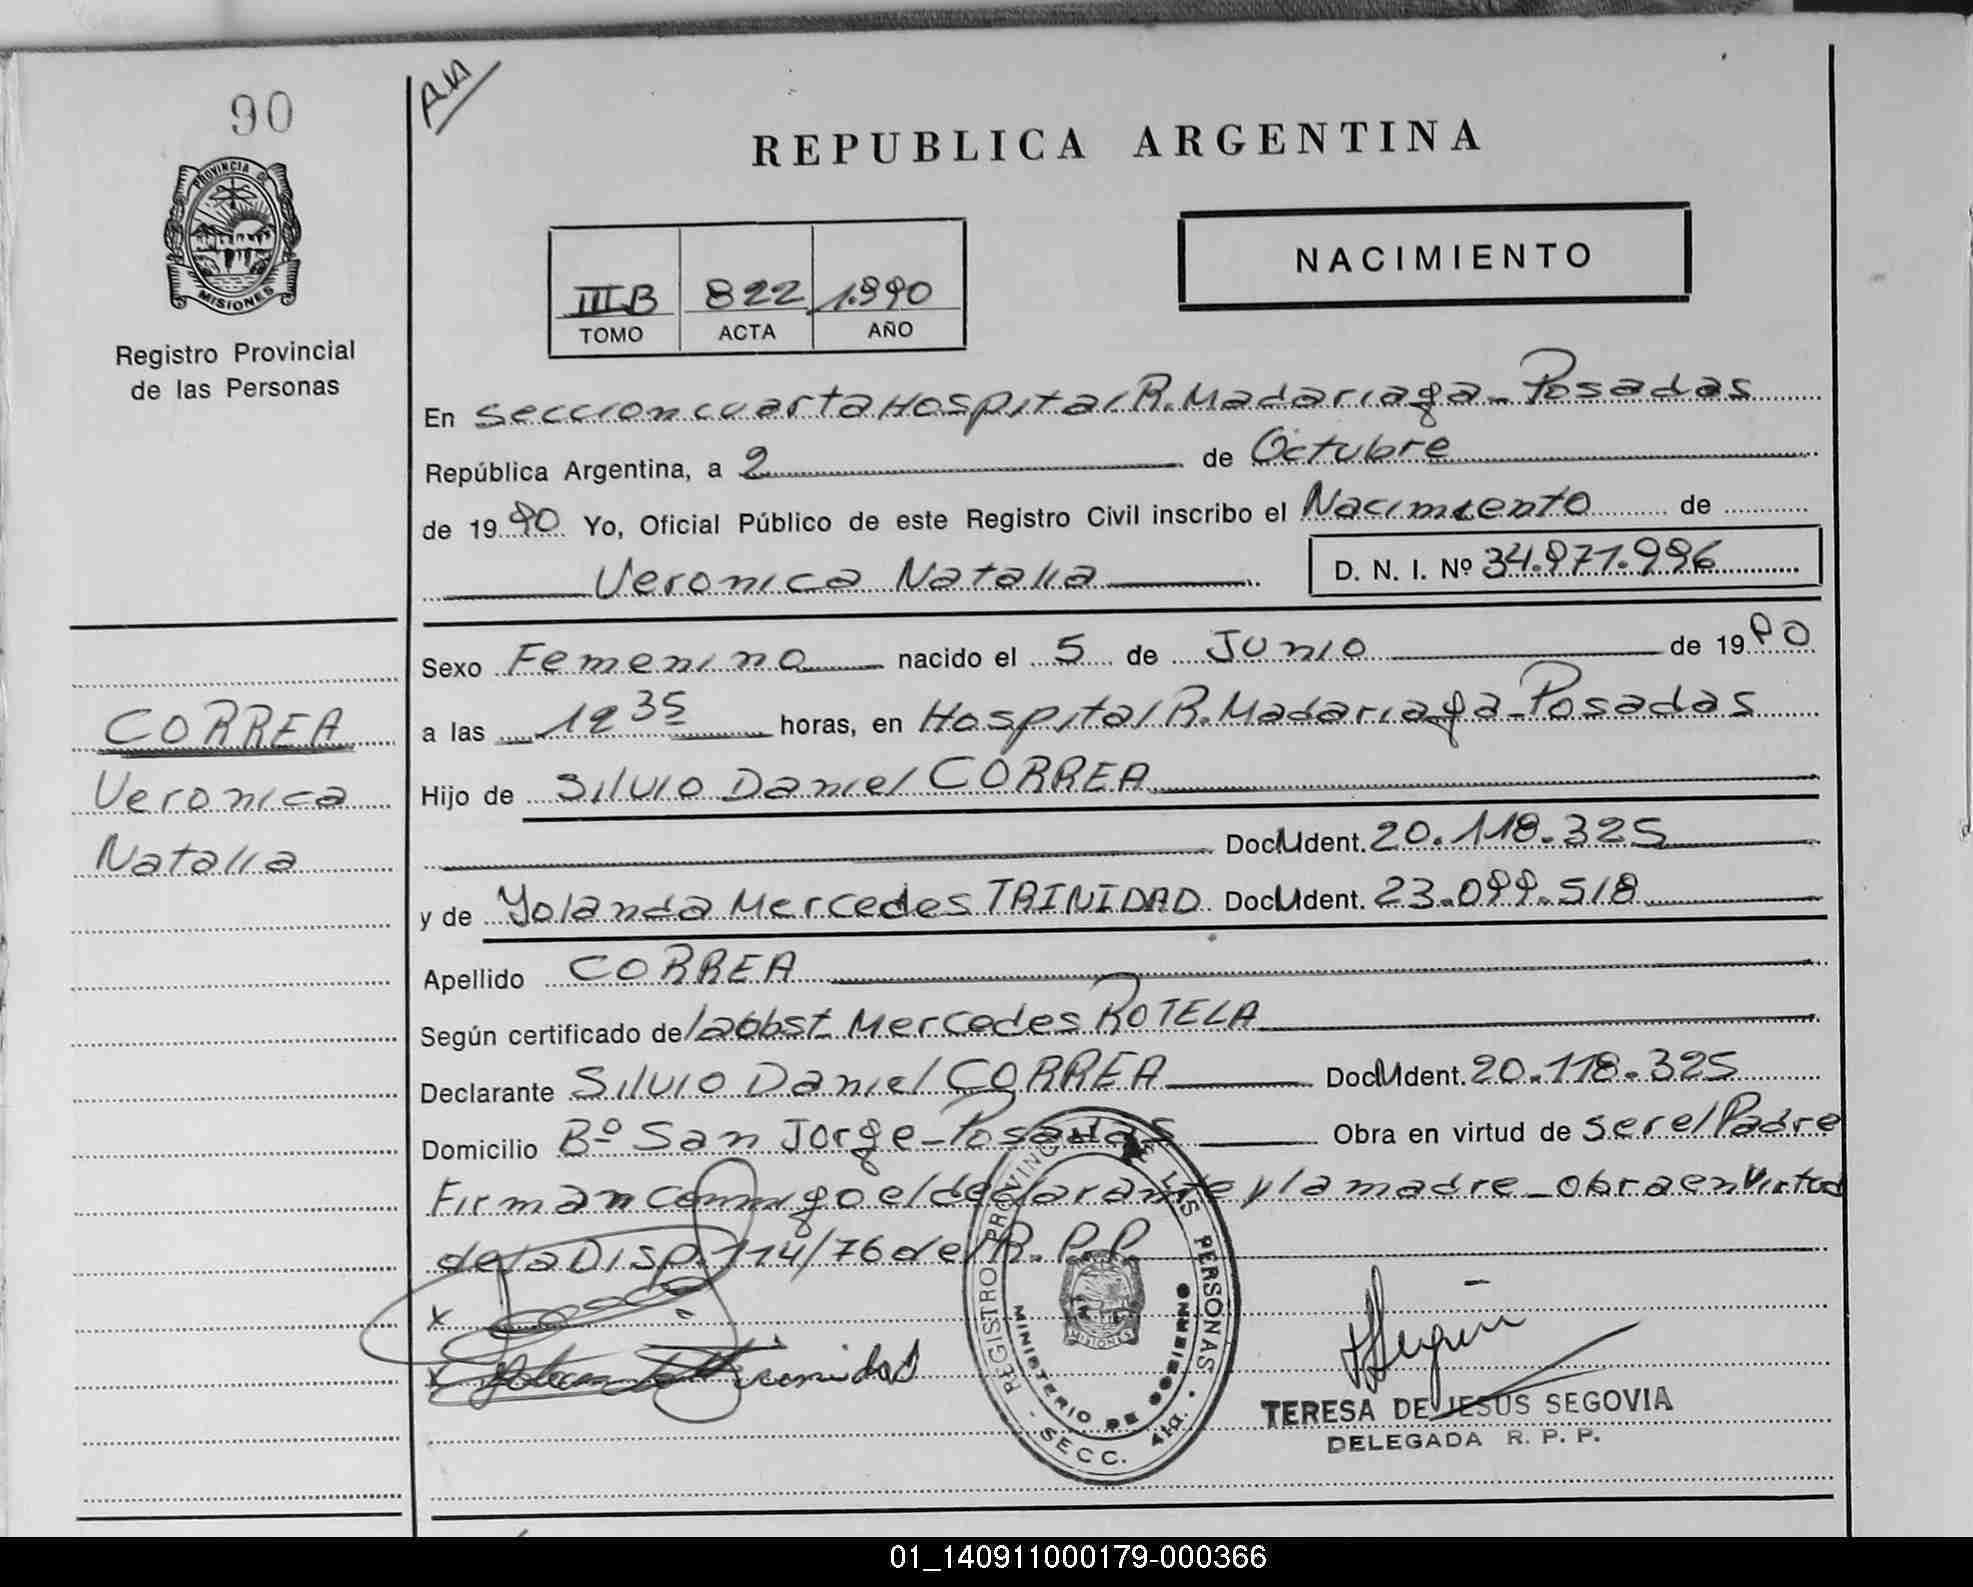 90
AN
PROVINCIA DE
MISIONES
Registro Provincial
de las Personas
REPUBLICA ARGENTINA
NACIMIENTO
III B 822 1.990
TOMO ACTA AÑO
En seccion cuarta Hospital R. Madariaga - Posadas
República Argentina, a 2 de Octubre
de 1990 Yo, Oficial Público de este Registro Civil inscribo el Nacimiento de
Veronica Natalia D. N. I. Nº 34.971.996
Sexo Femenino nacido el 5 de Junio de 1990
a las 12 35 horas, en Hospital R. Madariaga - Posadas
Hijo de Silvio Daniel CORREA
Doc. Ident. 20.118.325
y de Yolanda Mercedes TRINIDAD Doc. Ident. 23.099.518
Apellido CORREA
Según certificado de la obst Mercedes ROTELA
Declarante Silvio Daniel CORREA Doc. Ident. 20.118.325
Domicilio Bº San Jorge - Posadas Obra en virtud de ser el Padre
Firman conmigo el declarante y la madre - obra en virtud
de la Disp. 114/76 del R. P P
CORREA
Veronica
Natalia
x
x Trinidad
REGISTRO PROVINCIAL DE LAS PERSONAS
MINISTERIO DE GOBIERNO
SECC. 4ta.
MISIONES
TERESA DE JESUS SEGOVIA
DELEGADA R. P. P.
01_140911000179-000366